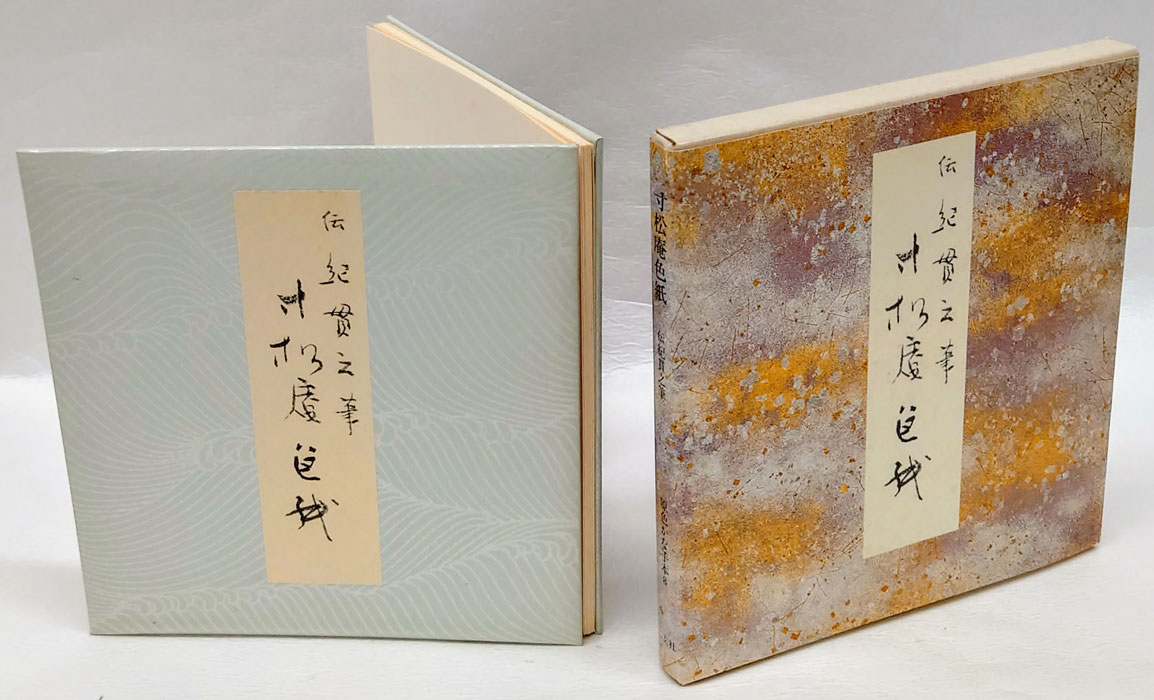 伝 紀貫之筆
寸松庵色紙
寸松庵色紙 伝紀貫之筆 原色かな手本8
伝 紀貫之筆
寸松庵色紙